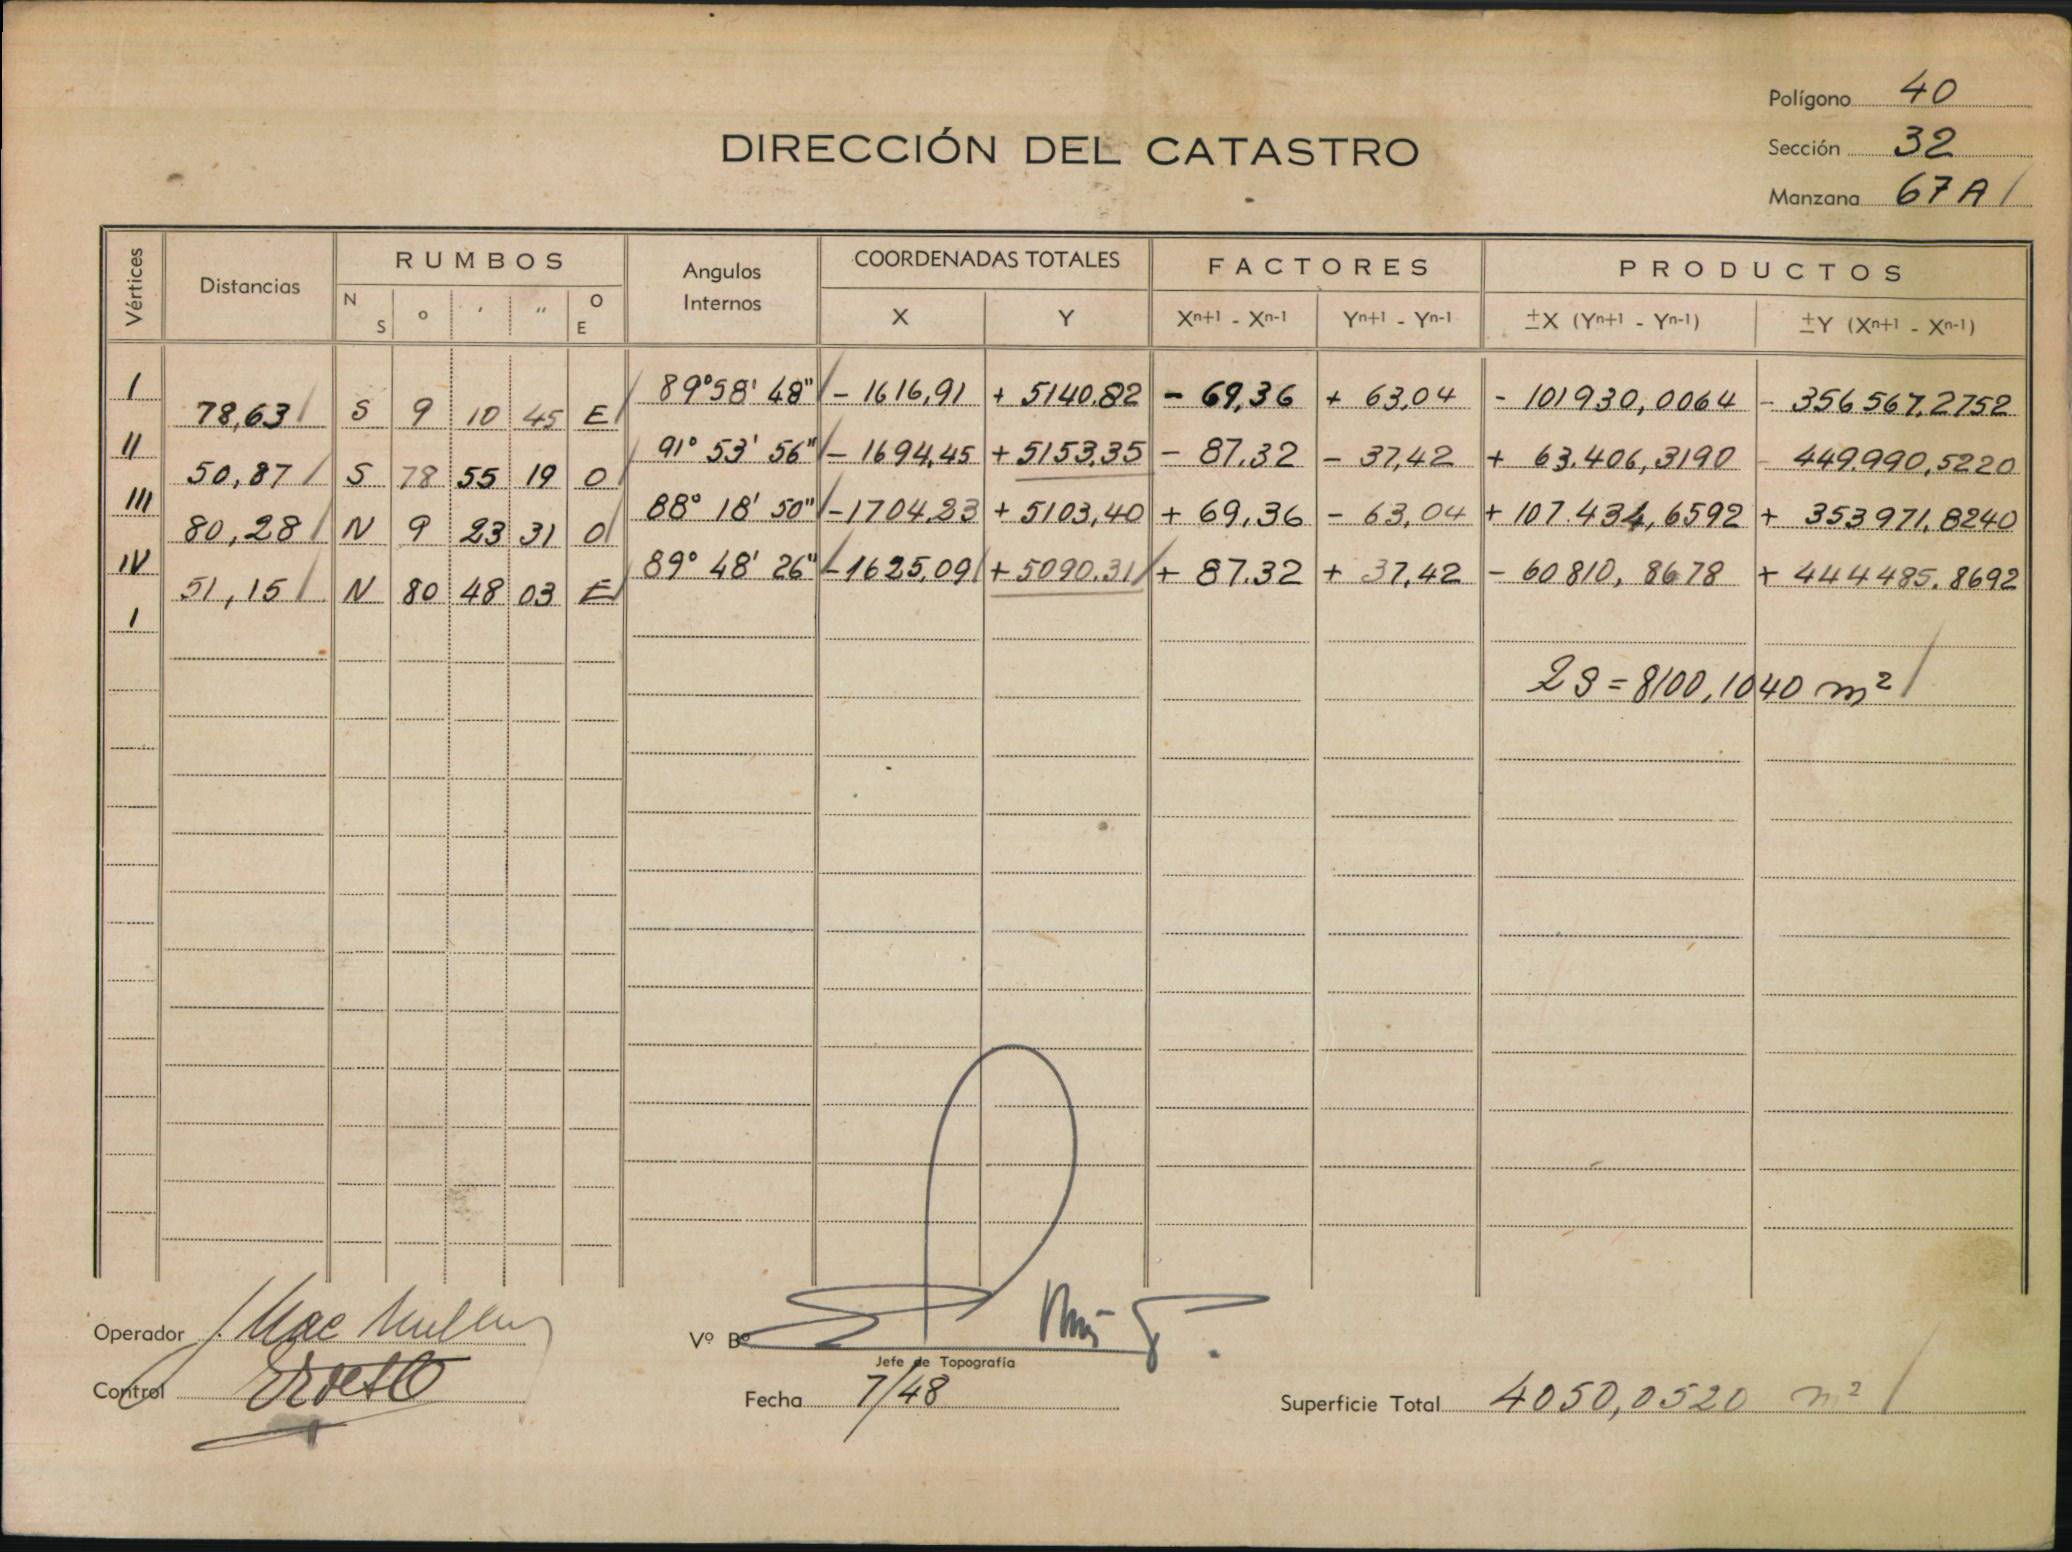 Polígono 40
DIRECCIÓN DEL CATASTRO
Sección 32
Manzana 67A
Vértices Distancias RUMBOS Angulos Internos COORDENADAS TOTALES FACTORES PRODUCTOS
N S ° ' " O E X Y Xⁿ⁺¹ - Xⁿ⁻¹ Yⁿ⁺¹ - Yⁿ⁻¹ ±X (Yⁿ⁺¹ - Yⁿ⁻¹) ±Y (Xⁿ⁺¹ - Xⁿ⁻¹)
I 89°58' 48" - 1616,91 + 5140,82 - 69,36 + 63,04 - 101930,0064 - 356567,2752
78,63 S 9 10 45 E
II 91° 53' 56" - 1694,45 + 5153,35 - 87,32 - 37,42 + 63.406,3190 - 449.990,5220
50,87 S 78 55 19 O
III 88° 18' 50" - 1704,23 + 5103,40 + 69,36 - 63,04 + 107.434,6592 + 353971,8240
80,28 N 9 23 31 O
IV 89° 48' 26" - 1625,09 + 5090,31 + 87,32 + 37,42 - 60810,8678 + 444485,8692
51,15 N 80 48 03 E
I
2S = 8100,1040 m²
Operador J. Mac Mullen
Vº Bº
Jefe de Topografía
Control
Fecha 7/48
Superficie Total 4050,0520 m²